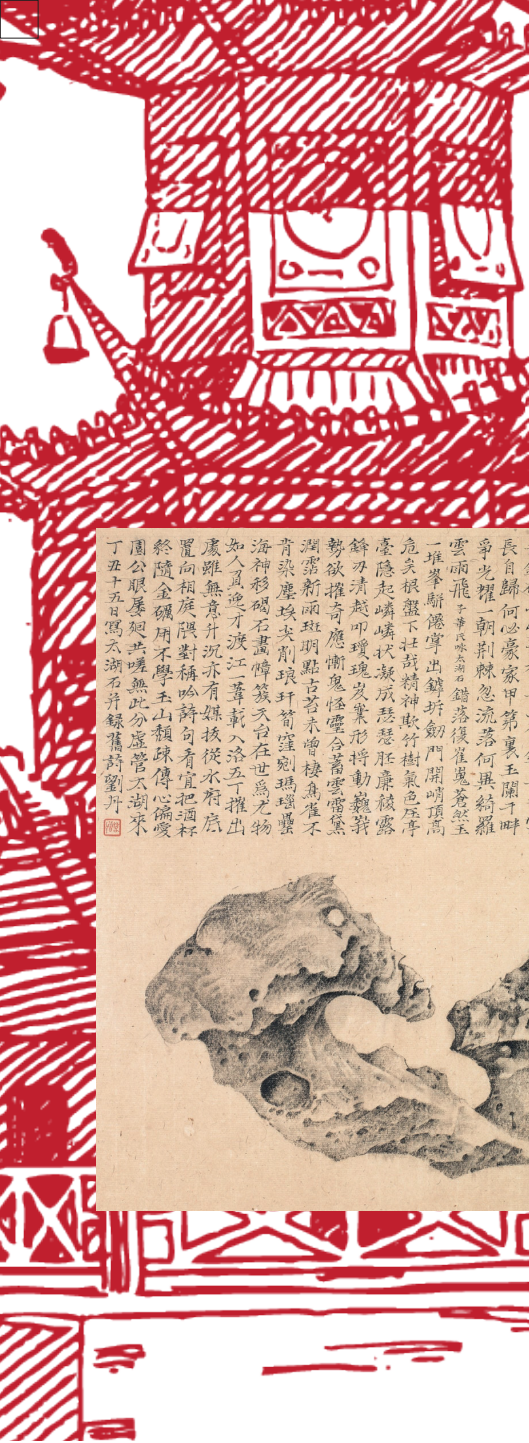 長自歸何必豪家甲第裏玉闌干畔
爭光耀一朝荆棘忽流落何異綺羅
雲雨飛 子華氏咏太湖石 錯落復崔嵬蒼然玉
一堆峯駢僊掌出罅坼劒門開峭頂高
危矣根盤下壮哉精神欺竹樹氣色壓亭
臺隱起嶙嶙状凝成瑟瑟胚廉稜露
鋒刃清越叩瓊瑰岌嶪形将動巍峩
勢欲摧奇應慚鬼怪靈合蓄雲雷黛
潤霑新雨斑明點古苔未曾棲鳥雀不
肯染塵埃尖削琅玕筍窪剜瑪瑙罍
海神移碣石畫幛簇天台在世爲尤物
如人負逸才渡江一葦載入洛五丁推出
處雖無意升沉亦有媒拔從水府底
置向相庭隈對稱吟詩句看宜把酒杯
終隨金礪用不學玉山頽疎傅心偏愛
園公眼屢廻共嗟無此分虚管太湖來
丁丑十五日寫太湖石并録舊詩劉丹